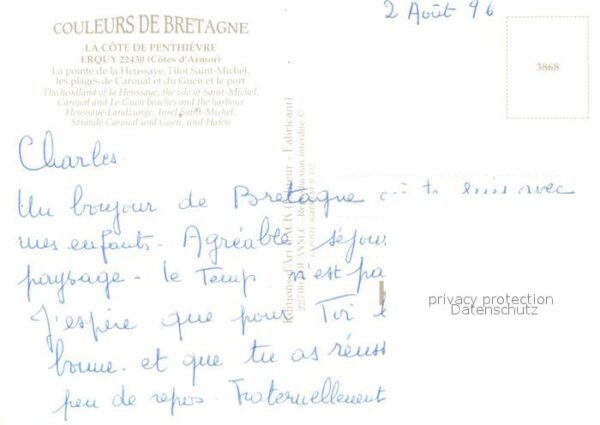 2 Août 96
COULEURS DE BRETAGNE
LA CÔTE DE PENTHIÈVRE
ERQUY 22430 (Côtes d'Armor)
La pointe de la Heussaye, l'îlot Saint-Michel,
les plages de Caroual et du Guen et le port
The headland of la Heussaye, the isle of Saint-Michel,
Caroual and Le Guen beaches and the harbour
Heussaye-Landzunge, Insel Saint-Michel,
Strände Caroual und Guen, und Hafen
3868
Charles
Un bonjour de Bretagne où je suis avec
mes enfants - Agréable séjour
paysage - le Temps n'est pa
J'espère que pour Toi
bonne et que tu as réuss
peu de repos - Fraternellement
Editions d'Art JACK
privacy protection
Datenschutz